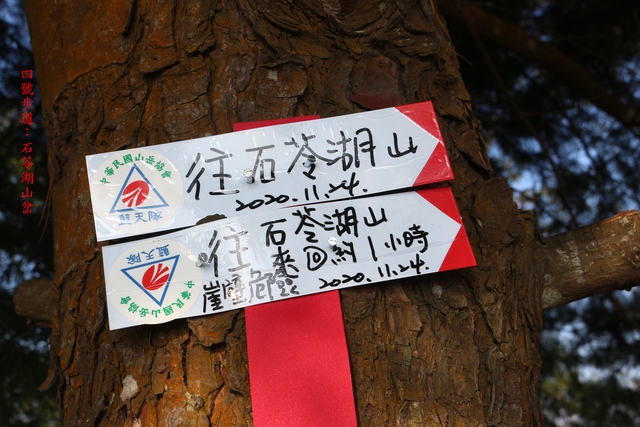 四號步道：石苓湖山岔
中華民國山岳協會
藍天隊
往石苓湖山
2020.11.24.
藍天隊
中華民國山岳協會
往石苓湖山
來回約1小時
崖壁危險
2020.11.24.